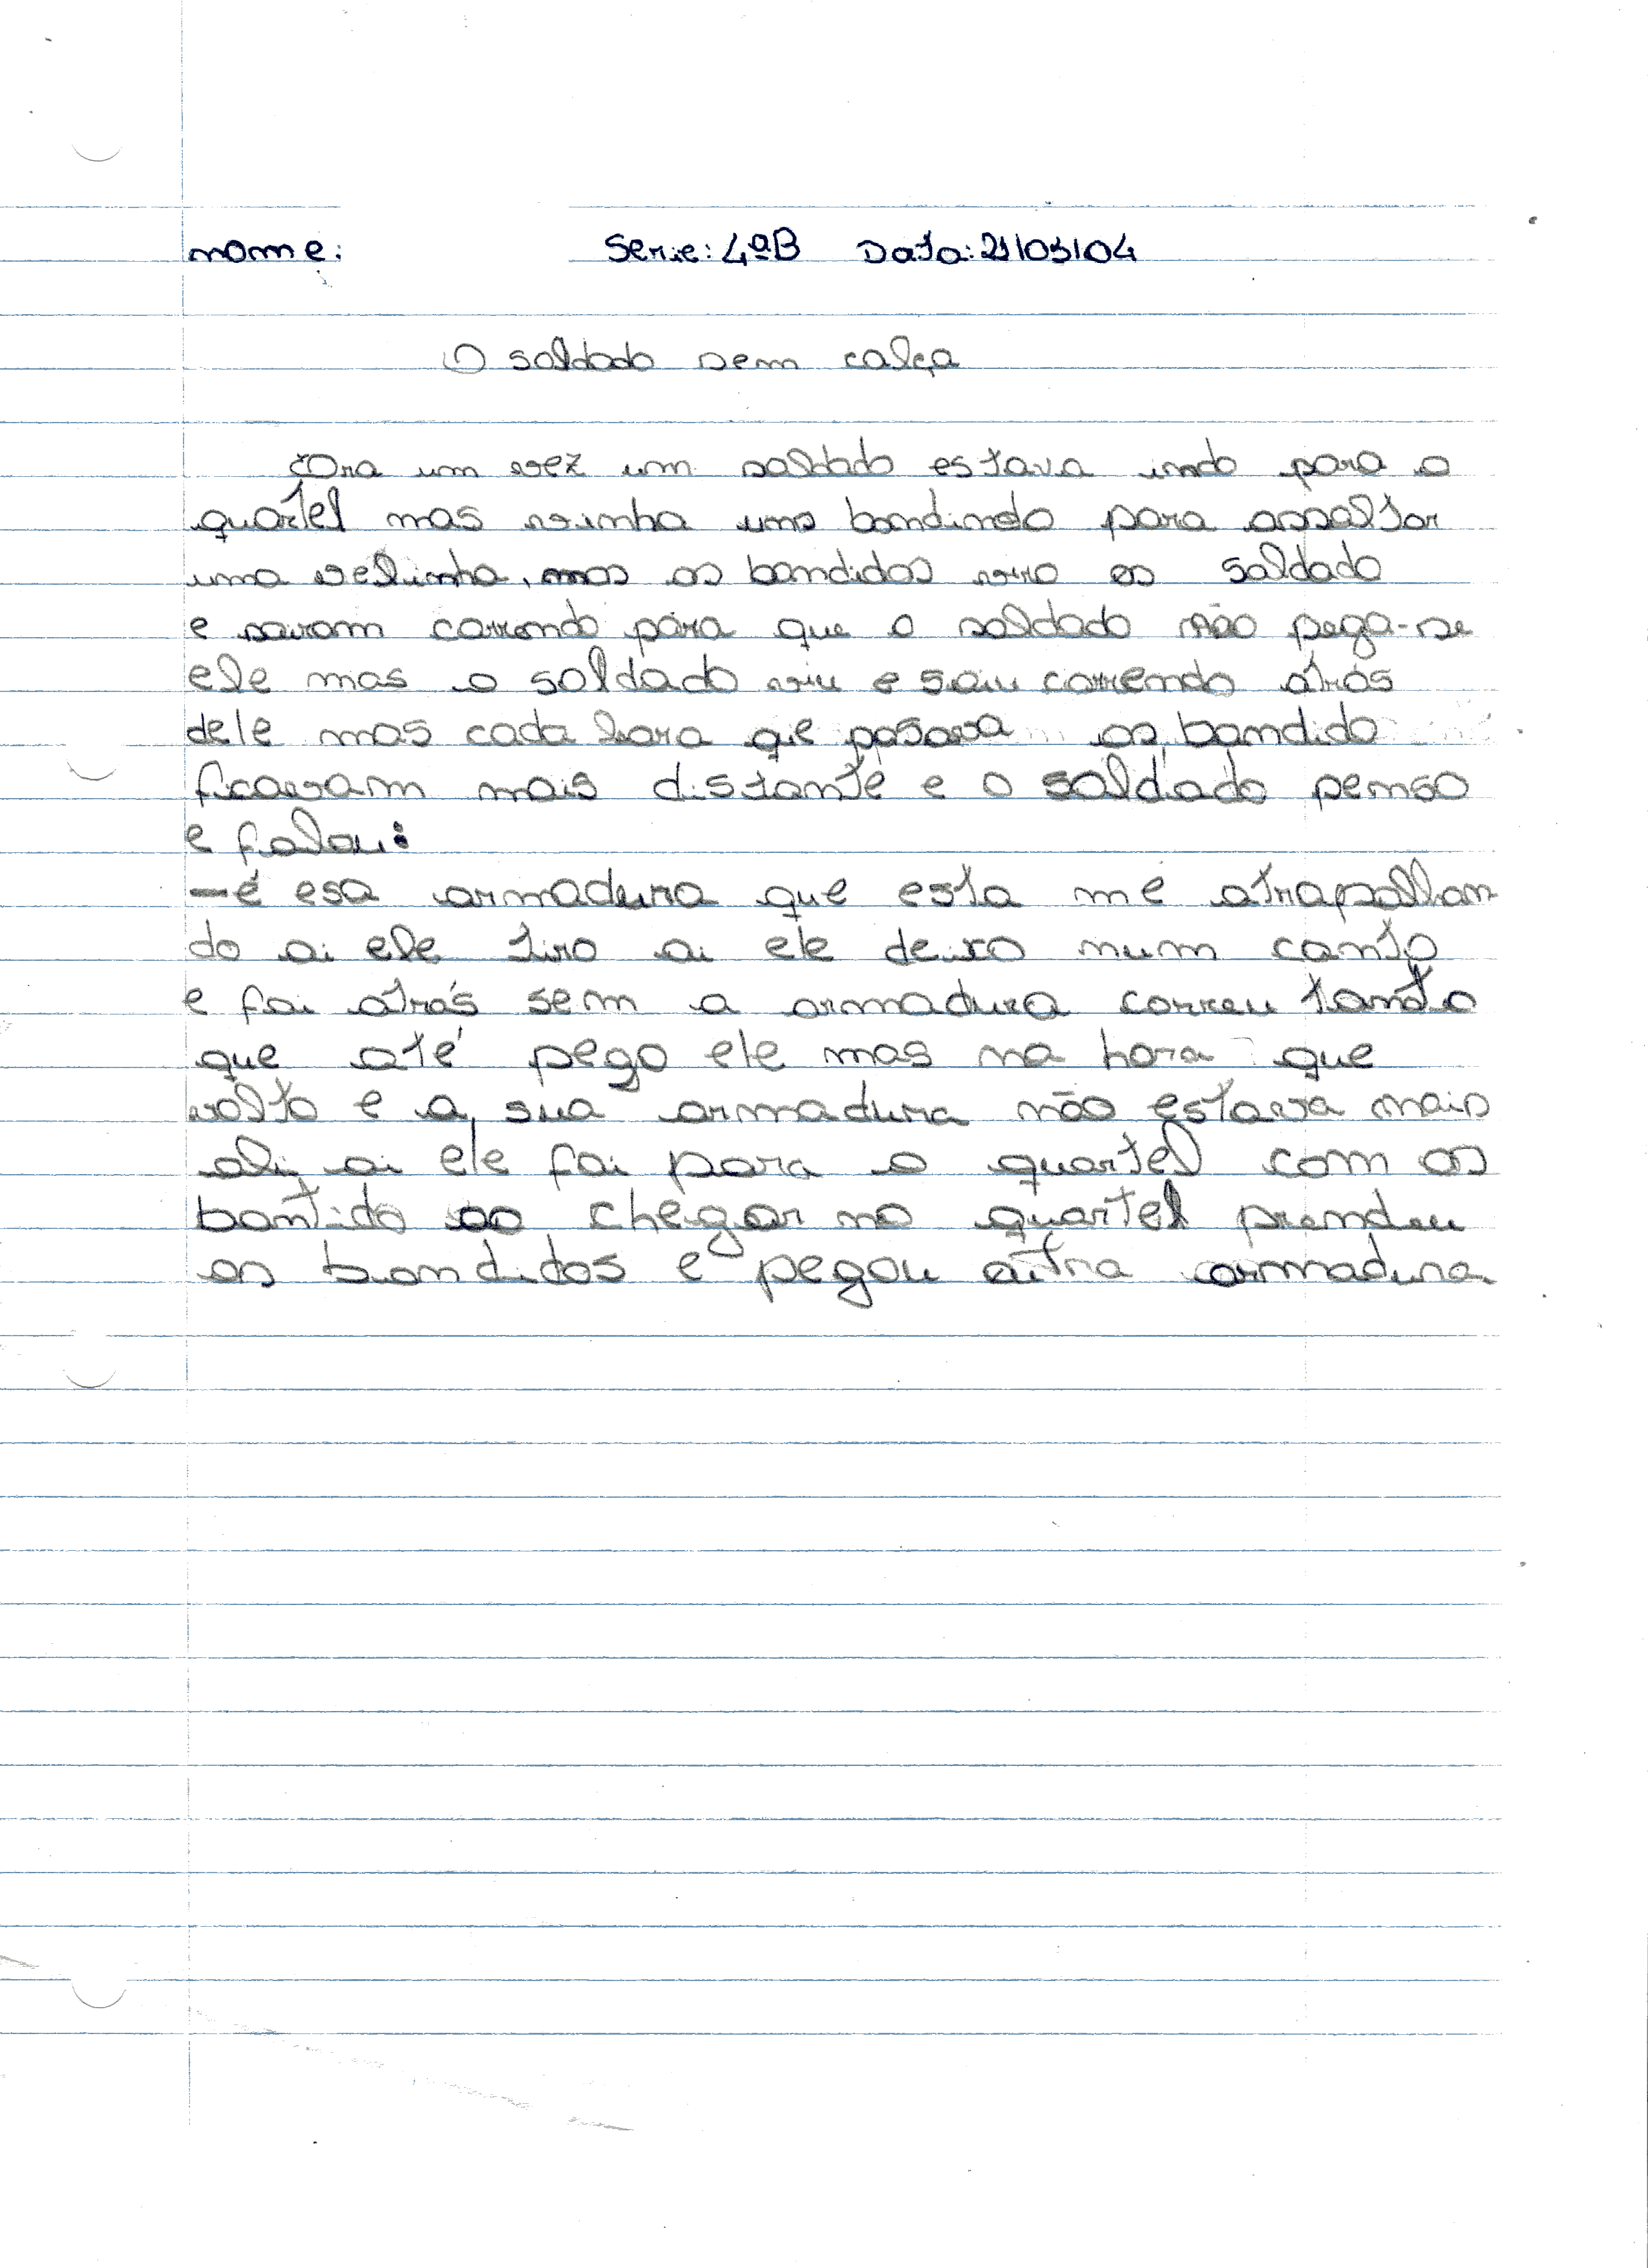 nome: Serie: 4ªB Data: 21/05/04
O soldado sem calça
Era um vez um soldado estava indo para o
quartel mas vinha uns bandindo para assaltar
uma velinha, mas os bandidos viro os soldado
e sairam correndo para que o soldado não pega-se
ele mas o soldado viu e saiu correndo atrás
dele mas cada hora que pasava os bandido
ficavam mais distante e o soldado penso
e falou:
— é esa armadura que esta me atrapalhan-
do ai ele tiro ai ele deixo num canto
e foi atrás sem a armadura correu tanto
que até pego ele mas na hora que
volto e a sua armadura não estava mais
ali ai ele foi para o quartel com os
bantido ao chegar no quartel prendeu
os bandidos e pegou outra armadura